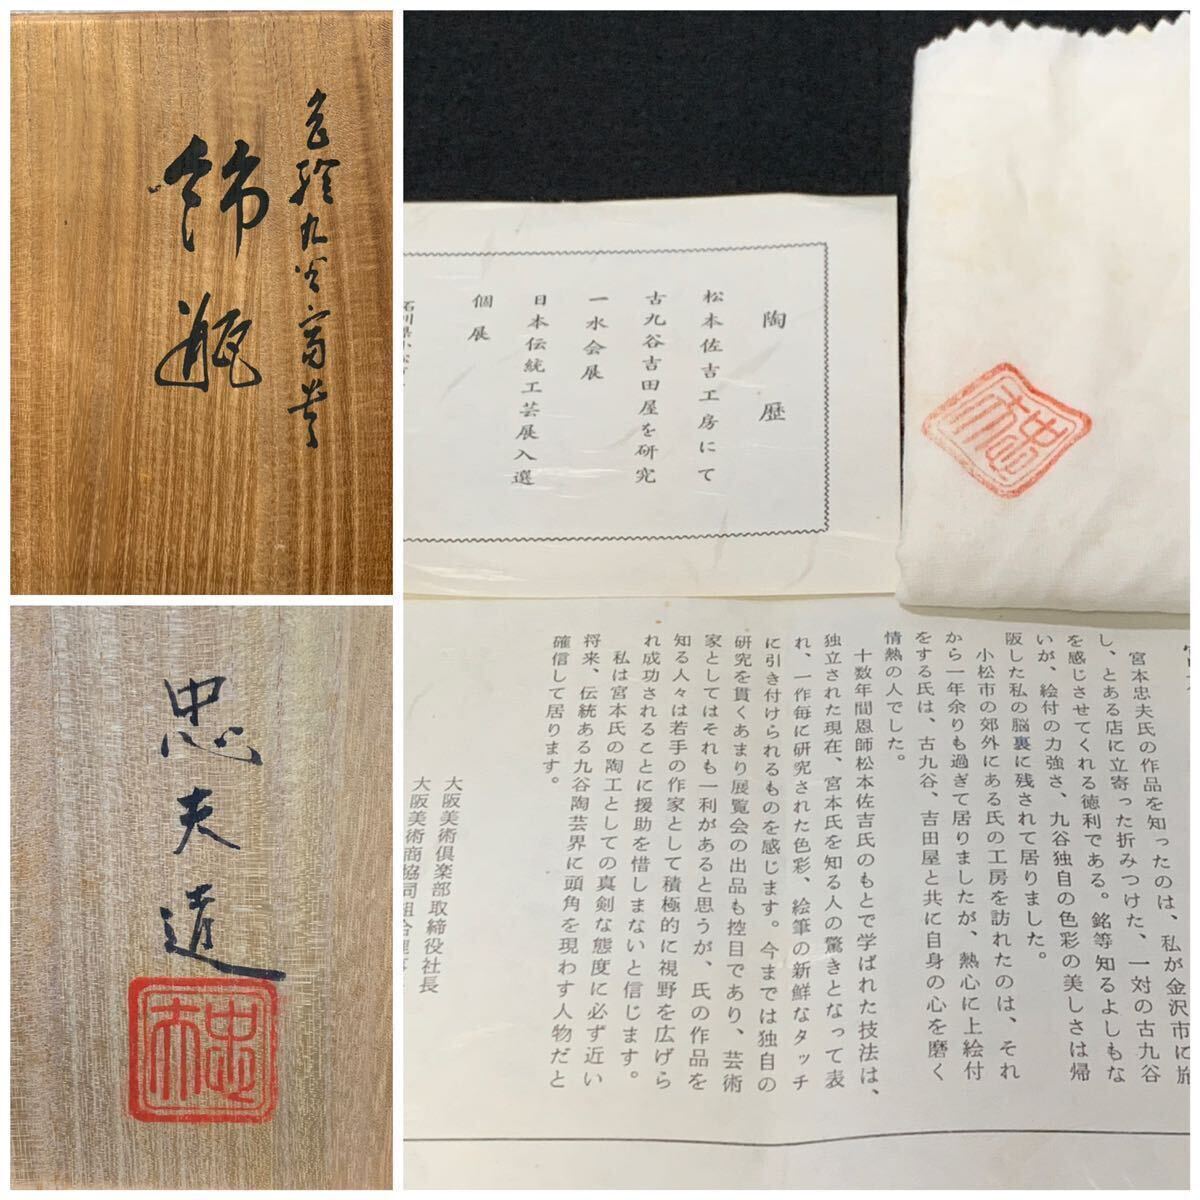 色絵九谷富貴
飾瓶
忠夫造
陶歴
松本佐吉工房にて
古九谷吉田屋を研究
一水会展
日本伝統工芸展入選
個展
宮本忠夫氏の作品を知ったのは、私が金沢市に旅
し、とある店に立寄った折みつけた、一対の古九谷
を感じさせてくれる徳利である。銘等知るよしもな
いが、絵付の力強さ、九谷独自の色彩の美しさは帰
阪した私の脳裏に残されて居りました。
小松市の郊外にある氏の工房を訪れたのは、それ
から一年余りも過ぎて居りましたが、熱心に上絵付
をする氏は、古九谷、吉田屋と共に自身の心を磨く
情熱の人でした。
十数年間恩師松本佐吉氏のもとで学ばれた技法は、
独立された現在、宮本氏を知る人の驚きとなって表
れ、一作毎に研究された色彩、絵筆の新鮮なタッチ
に引き付けられるものを感じます。今までは独自の
研究を貫くあまり展覧会の出品も控目であり、芸術
家としてはそれも一利があると思うが、氏の作品を
知る人々は若手の作家として積極的に視野を広げら
れ成功されることに援助を惜しまないと信じます。
私は宮本氏の陶工としての真剣な態度に必ず近い
将来、伝統ある九谷陶芸界に頭角を現わす人物だと
確信して居ります。
大阪美術倶楽部取締役社長
大阪美術商協同組合理